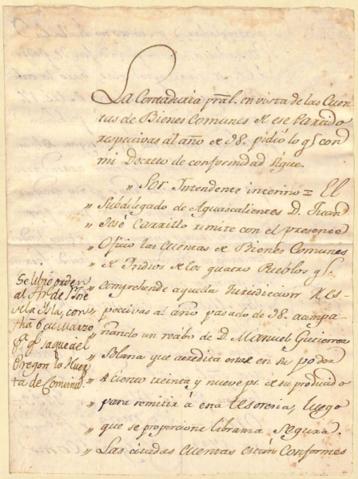 La Contaduria pral. en vista de las Cuen
tas de Bienes Comunes de ese Partido
respectivas al año de 98. pidió lo q.e con
mi Decreto de conformidad sigue.
„ Sor. Intendente interino = El
„ Subdelegado de Aguascalientes D. Juan
„ José Carrillo remite con el presente
„ Oficio las Cuentas de Bienes Comunes
„ de Indios de los quatro Pueblos q.e
„ comprehende aquella Jurisdiccion respec
„ pectivas al año pasado de 98. acompa
„ ñando un recibo de D. Manuel Gutierrez
„ Solana que acredita en su poder
„ ciento treinta y nueve p.s de su producido
„ para remitir á esta tesoreria, luego
„ que se proporcione libranza segura.
„ Las citadas Cuentas están conformes
Se libró orden
al
con
fha 6 de Marzo
de Comunid